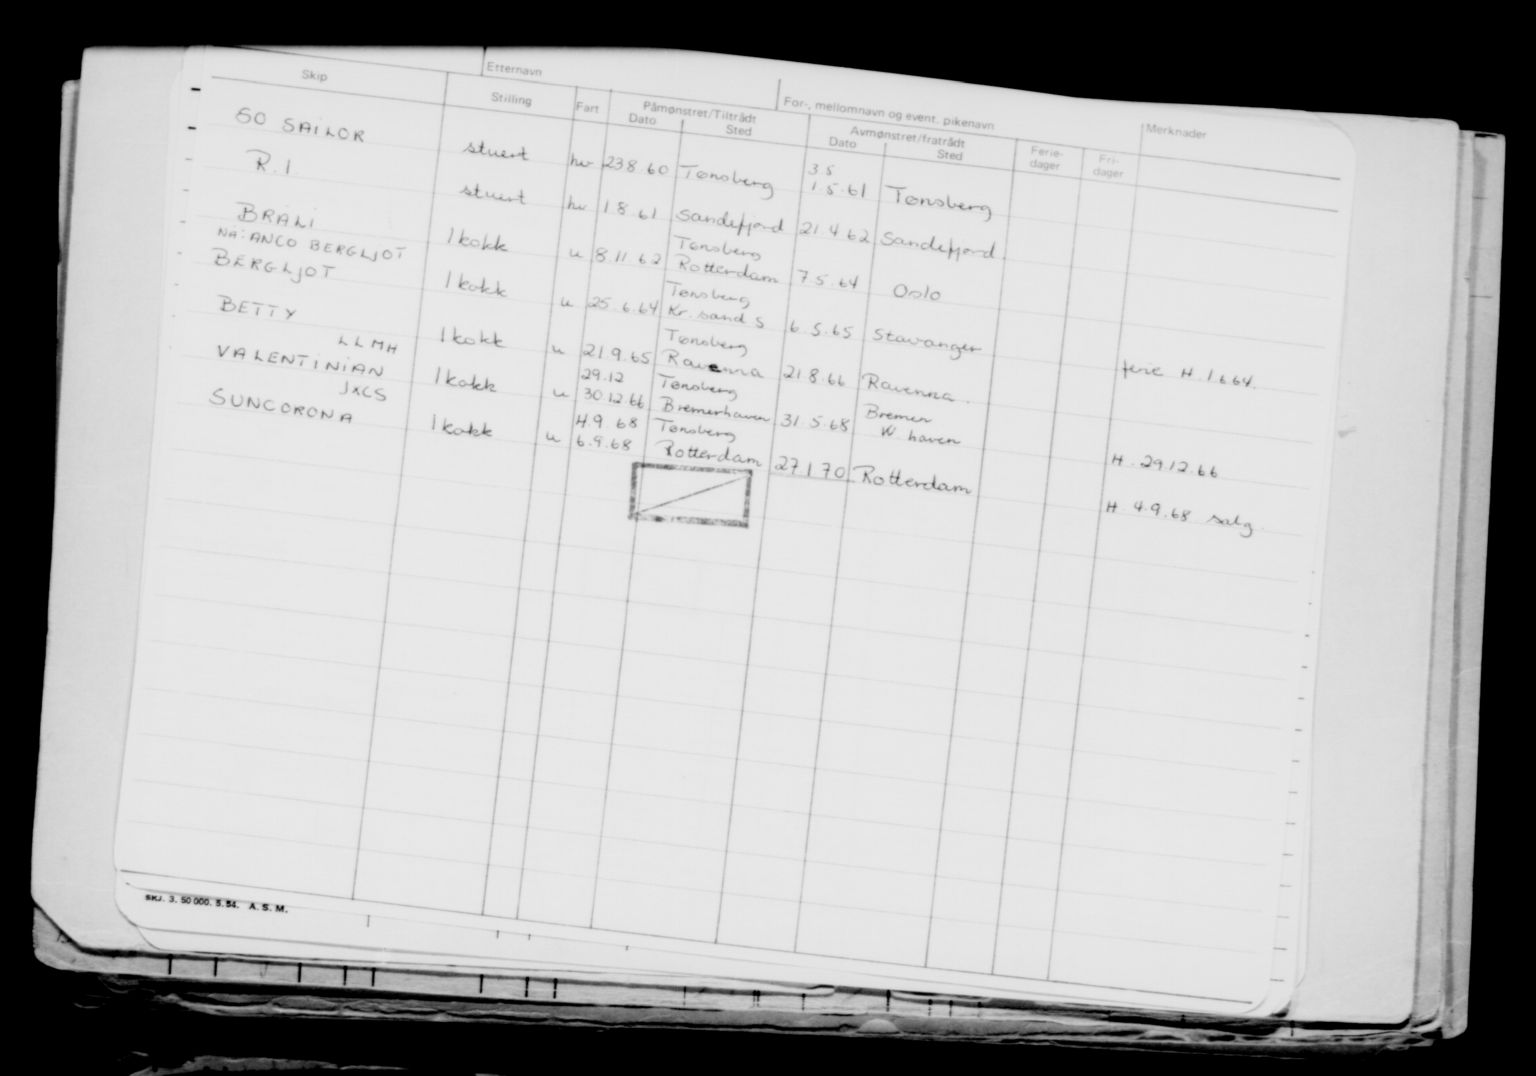 Etternavn
For-, mellomnavn og event. pikenavn
Skip Stilling Fart Påmønstret/Tiltrådt Avmønstret/fratrådt Ferie- Fri- Merknader
Dato Sted Dato Sted dager dager
GO SAILOR stuert hv 23.8.60 Tønsberg 3.5 1.5.61 Tønsberg
R.1. stuert hv 1.8.61 Sandefjord 21.4.62 Sandefjord.
BRALI 1 kokk u 8.11.62 Tønsberg Rotterdam 7.5.64 Oslo
NÅ: ANCO BERGLJOT
BERGLJOT 1 kokk u 25.6.64 Tønsberg Kr. sand S 6.5.65 Stavanger ferie H. 1.6.64.
BETTY 1 kokk u 21.9.65 Tønsberg Ravenna 21.8.66 Ravenna.
LLMH
VALENTINIAN 1 kokk u 29.12 30.12.66 Tønsberg Bremerhaven 31.5.68 Bremen W. haven H. 29.12.66
JXCS
SUNCORONA 1 kokk u H.9.68 6.9.68 Tønsberg Rotterdam 27.1.70 Rotterdam H. 4.9.68 salg.
SKJ. 3. 50 000. 5. 54. A. S. M.